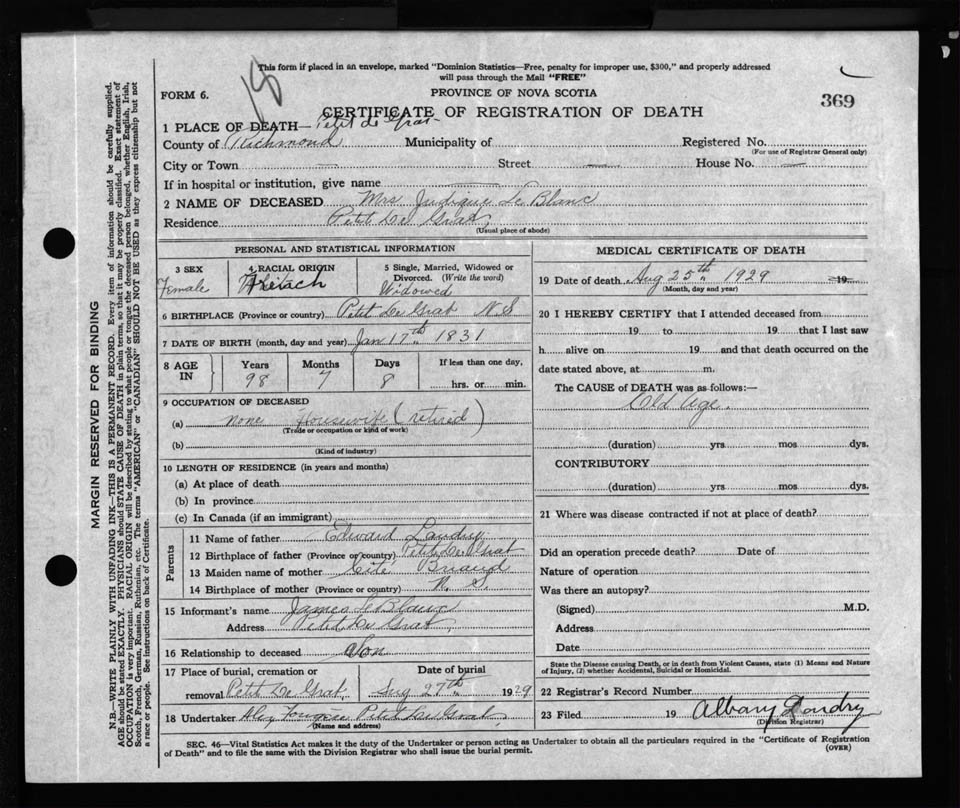 18
This form if placed in an envelope, marked "Dominion Statistics—Free, penalty for improper use, $300," and properly addressed
will pass through the Mail "FREE"
FORM 6.
PROVINCE OF NOVA SCOTIA
369
CERTIFICATE OF REGISTRATION OF DEATH
1 PLACE OF DEATH— Petit de Grat
County of Richmond Municipality of Registered No.
(For use of Registrar General only)
City or Town — Street — House No. —
If in hospital or institution, give name —
2 NAME OF DECEASED Mrs Judique Le Blanc
Residence Petit De Grat
(Usual place of abode)
PERSONAL AND STATISTICAL INFORMATION
3 SEX Female
4 RACIAL ORIGIN French
5 Single, Married, Widowed or Divorced. (Write the word) Widowed
6 BIRTHPLACE (Province or country) Petit De Grat N.S
7 DATE OF BIRTH (month, day and year) Jan 17th 1831
8 AGE IN Years 98 Months 7 Days 8 If less than one day, hrs. or min.
9 OCCUPATION OF DECEASED
(a) none Housewife (retired)
(Trade or occupation or kind of work)
(b)
(Kind of industry)
10 LENGTH OF RESIDENCE (in years and months)
(a) At place of death
(b) In province
(c) In Canada (if an immigrant)
Parents
11 Name of father Edward Landry
12 Birthplace of father (Province or country) Petit De Grat
13 Maiden name of mother Briand
14 Birthplace of mother (Province or country) N. S
15 Informant's name James Le Blanc
Address Petit De Grat
16 Relationship to deceased Son
17 Place of burial, cremation or removal Petit De Grat Date of burial Aug 27th 1929
18 Undertaker Petit De Grat
(Name and address)
MEDICAL CERTIFICATE OF DEATH
19 Date of death Aug 25th 1929 19
(Month, day and year)
20 I HEREBY CERTIFY that I attended deceased from
19 to 19 that I last saw
h alive on 19 and that death occurred on the
date stated above, at m.
The CAUSE of DEATH was as follows:—
Old Age.
(duration) yrs. mos dys.
CONTRIBUTORY
(duration) yrs. mos. dys.
21 Where was disease contracted if not at place of death?
Did an operation precede death? Date of
Nature of operation
Was there an autopsy?
(Signed) M.D.
Address
Date
State the Disease causing Death, or in death from Violent Causes, state (1) Means and Nature
of Injury, (2) whether Accidental, Suicidal or Homicidal.
22 Registrar's Record Number
23 Filed 19 Albany Landry
(Division Registrar)
SEC. 46—Vital Statistics Act makes it the duty of the Undertaker or person acting as Undertaker to obtain all the particulars required in the "Certificate of Registration
of Death" and to file the same with the Division Registrar who shall issue the burial permit.
(OVER)
MARGIN RESERVED FOR BINDING
N.B.—WRITE PLAINLY WITH UNFADING INK—THIS IS A PERMANENT RECORD. Every item of information should be carefully supplied.
AGE should be stated EXACTLY. PHYSICIANS should STATE CAUSE OF DEATH in plain terms, so that it may be properly classified. Exact statement of
OCCUPATION is very important. RACIAL ORIGIN will be described by stating to what people or tongue the deceased person belonged, whether English, Irish,
Scotch, French, German, Russian, Ruthenian, etc. The terms "AMERICAN" or "CANADIAN" SHOULD NOT BE USED as they express citizenship but not
a race or people. See instructions on back of Certificate.